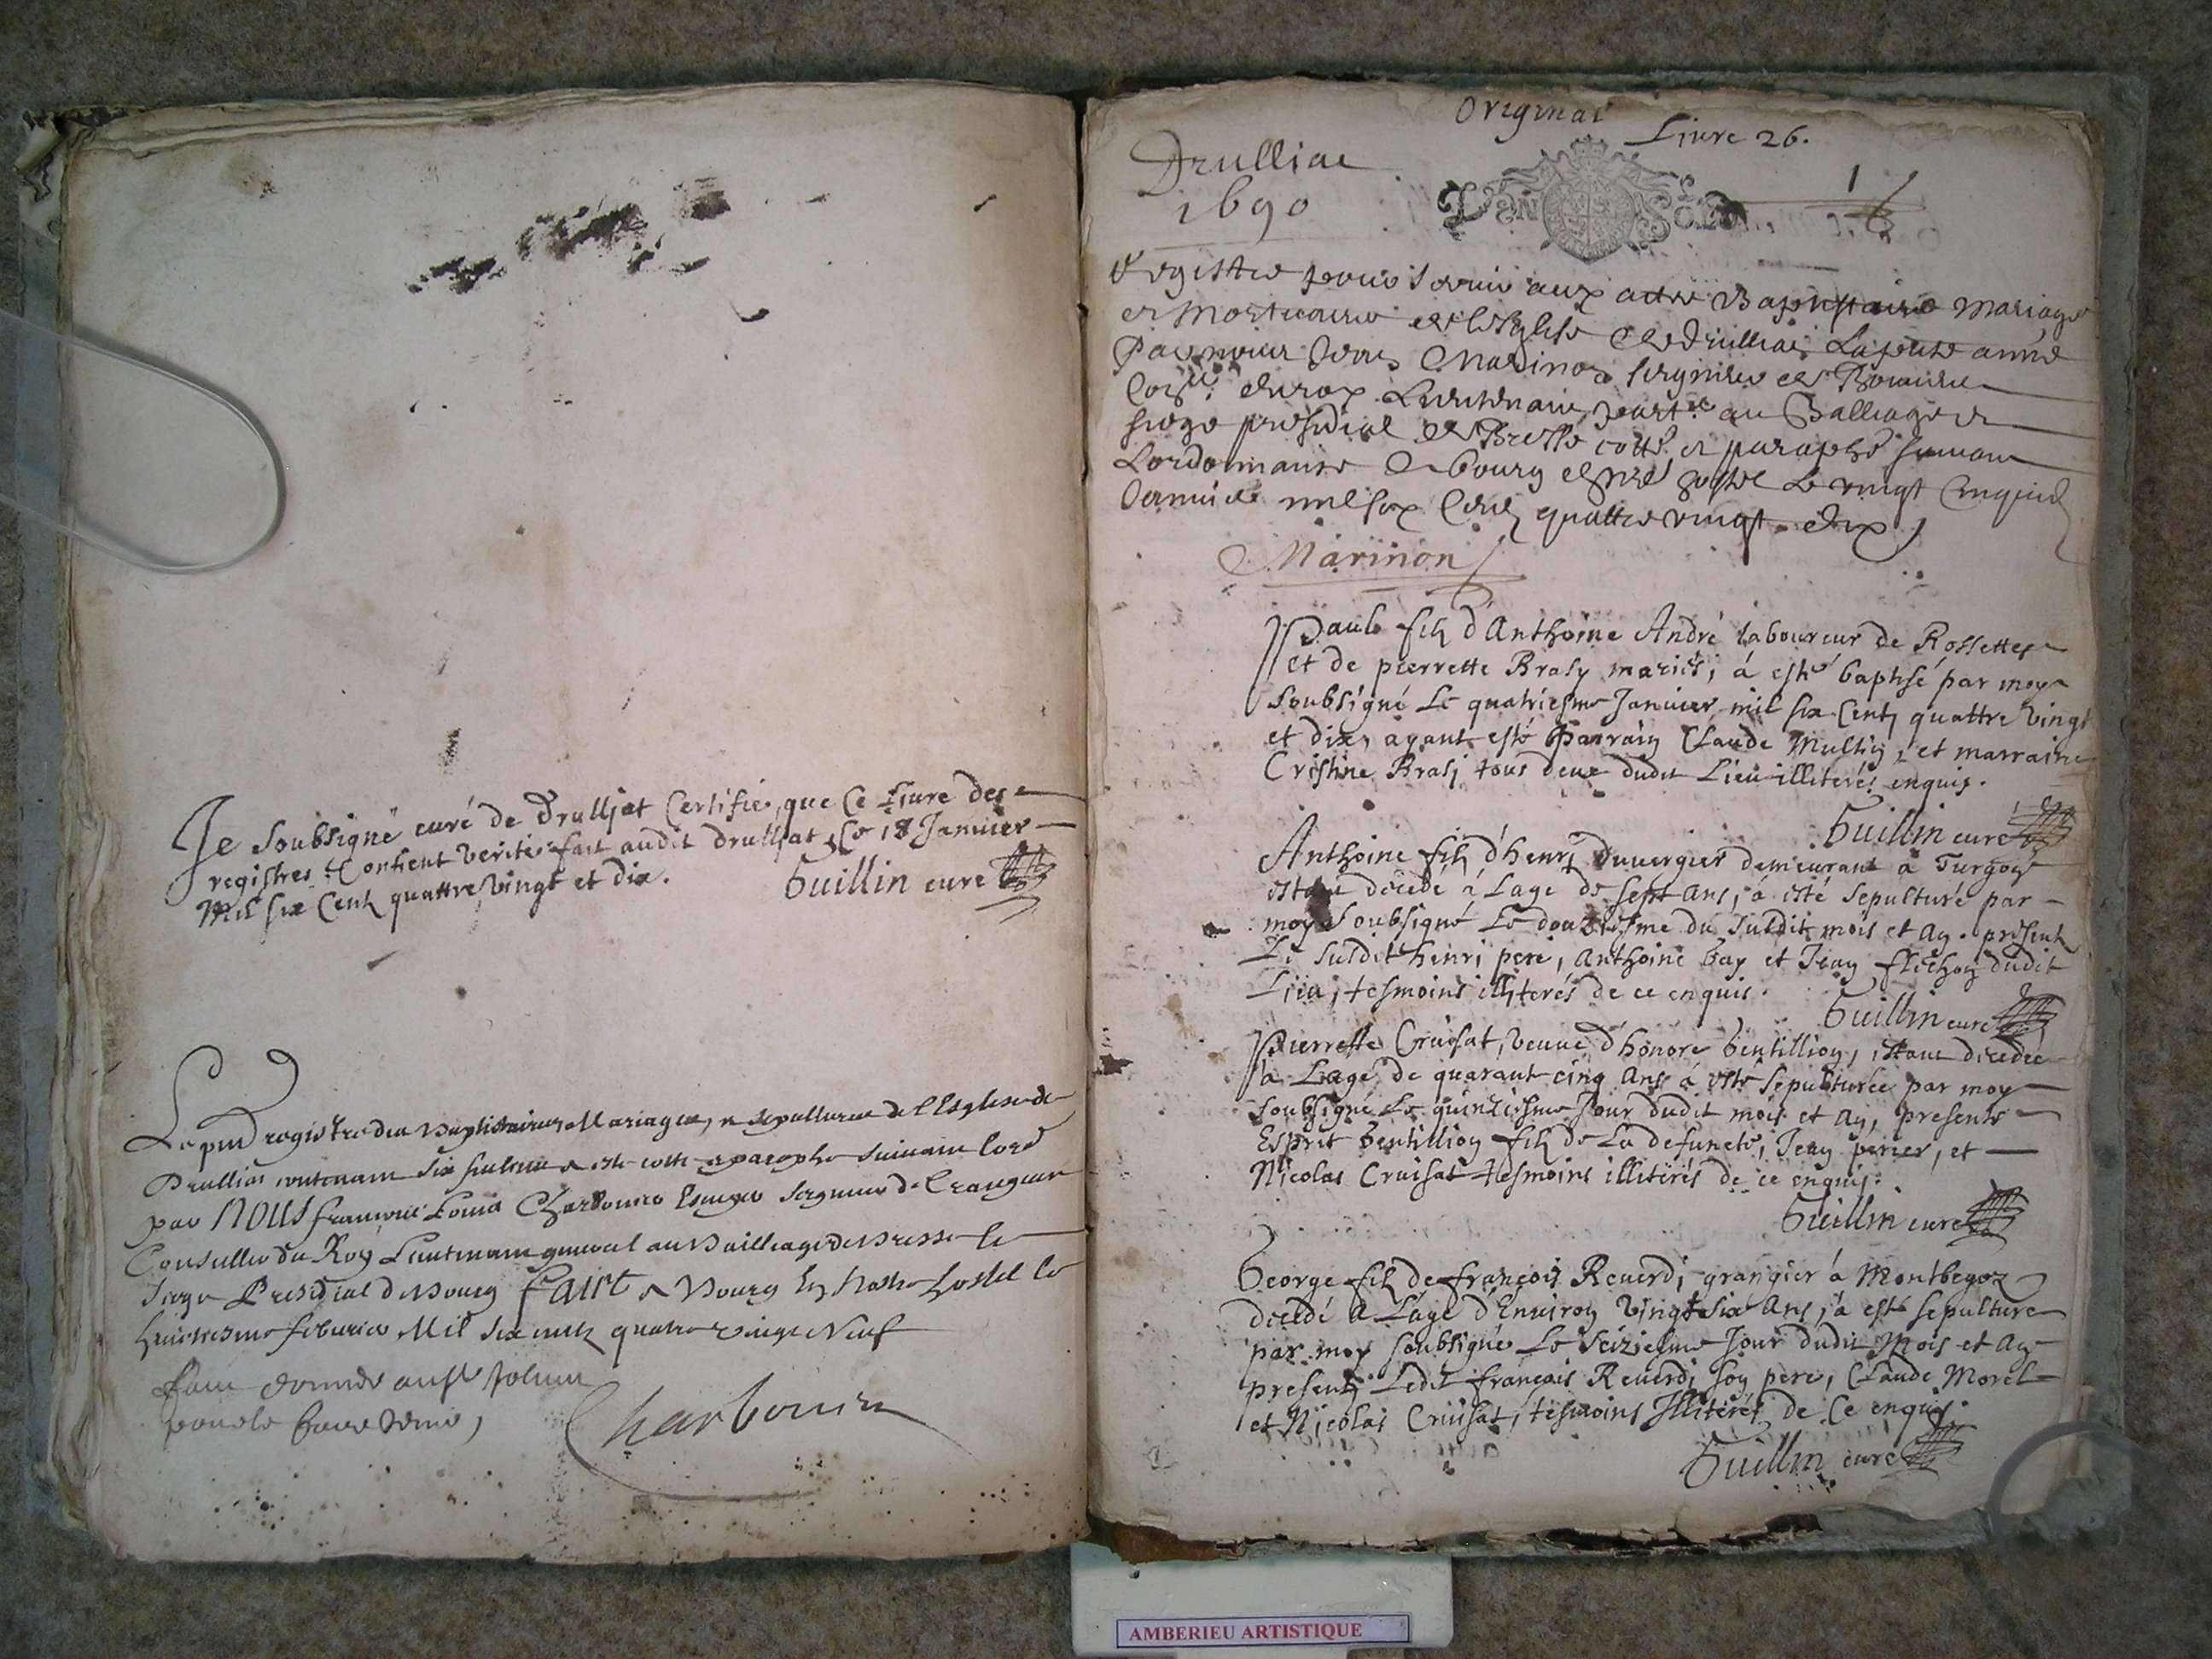 Je Soubsigné curé de Drulljat Certifie, que Ce Liure des
registres Contient Verité fait audit drulljat, Le 18 Januier
Mil six Cent quattre Vingt et dix.
Guillin curé
Le pnt registre des Baptistaires Mariages, et sepultures de l'Esglise de
Drulliat contenant six feulliets a esté cotté et paraphé suiuant lord
par NOUS François Louis Charbonier Escuyer Seigneur de Crangeac
Conseiller du Roy Lieutenant general au Bailliage de Bresse et
Siege Presidial de Bourg FAICT a Bourg En Nostre hostel le
huictiesme feburier Mil six cents quatre vingt Neuf
Charbonier
Original
Liure 26.
Drulliac
1690
1
registre pour seruir aux actes Baptistaire Mariage
et Mortuaires de l'esglise de drulliac La pnte année
Par nous Marinon seigneur de
Conser du roy Lieutenant part au Balliage et
siege presidial de Bresse cotté et paraphé suiuant
Lordonnance a bourg hostel Le vingt Cinquie
Januier mil six Cent quattre vingt dix
Marinon
Paule filz d'Anthoine André laboureur de Rossettes
et de pierrette Brasy mariés, à esté baptisé par moy
Soubsigné Le quatriesme Januier mil six Centz quattre Vingt
et dix, ayant esté Parrain Claude Multin, et marraine
Cristine Brasj tous deux dudit Lieu illiterés enquis.
Guillin curé
Anthoine filz d'henrj duuergier demeurant à Turgon
estant decedé à Lage de sept ans, à esté sepulturé par
moy Soubsigné Le douziesme du Susdit mois et an. présent
Le susdit henrj pere, anthoine Gay et Jean flechon dudit
Lieu, tesmoins illiterés de ce enquis.
Guillin curé
Pierrette Cruisat, Veuue d'honore Gentillion, estant decedée
à Lage de quarant cinq ans à esté sepulturée par moy
Soubsigné Le quinziesme Jour dudit mois et an, presents
Esprit Gentillion filz de La defuncte, Jean perier, et
Nicolas Cruisat tesmoins illiterés de ce enquis.
Guillin curé
George filz de françois Reuerdj grangier à Montbegoz
decedé a Lage d'Enuiron Vingt six Ans, à esté sepulture
par moy soubsigné Le seiziesme Jour dudit Mois et an
presentz Ledit françois Reuerdj son pere, Claude Morel
et Nicolas Cruisat, tesmoins Illiterés de Ce enquis.
Guillin curé
AMBERIEU ARTISTIQUE